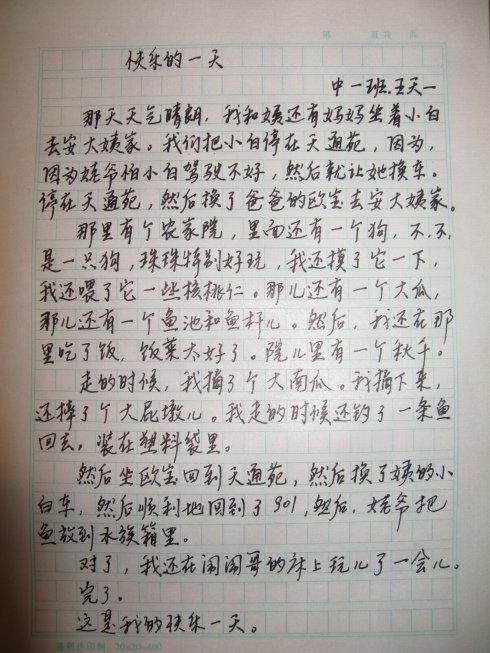 第 页共 页
快乐的一天
中一班.王天一
那天天气晴朗，我和姨还有妈妈坐着小白
去安大姨家。我们把小白停在天通苑，因为，
因为姥爷怕小白驾驶不好，然后就让她换车。
停在天通苑，然后换了爸爸的欧宝去安大姨家。
那里有个农家院，里面还有一个狗，不，不，
是一只狗，珠珠特别好玩，我还摸了它一下，
我还喂了它一些核桃仁。那儿还有一个大瓜，
那儿还有一个鱼池和鱼杆儿。然后，我还在那
里吃了饭，饭菜太好了。院儿里有一个秋千。
走的时候，我摘了个大南瓜。我摘下来，
还摔了个大屁墩儿。我走的时候还钓了一条鱼
回去，装在塑料袋里。
然后坐欧宝回到天通苑，然后换了姨的小
白车，然后顺利地回到了901，然后，姥爷把
鱼放到水族箱里。
对了，我还在闹闹哥的床上玩儿了一会儿。
完了。
这是我的快乐一天。
20×20=400